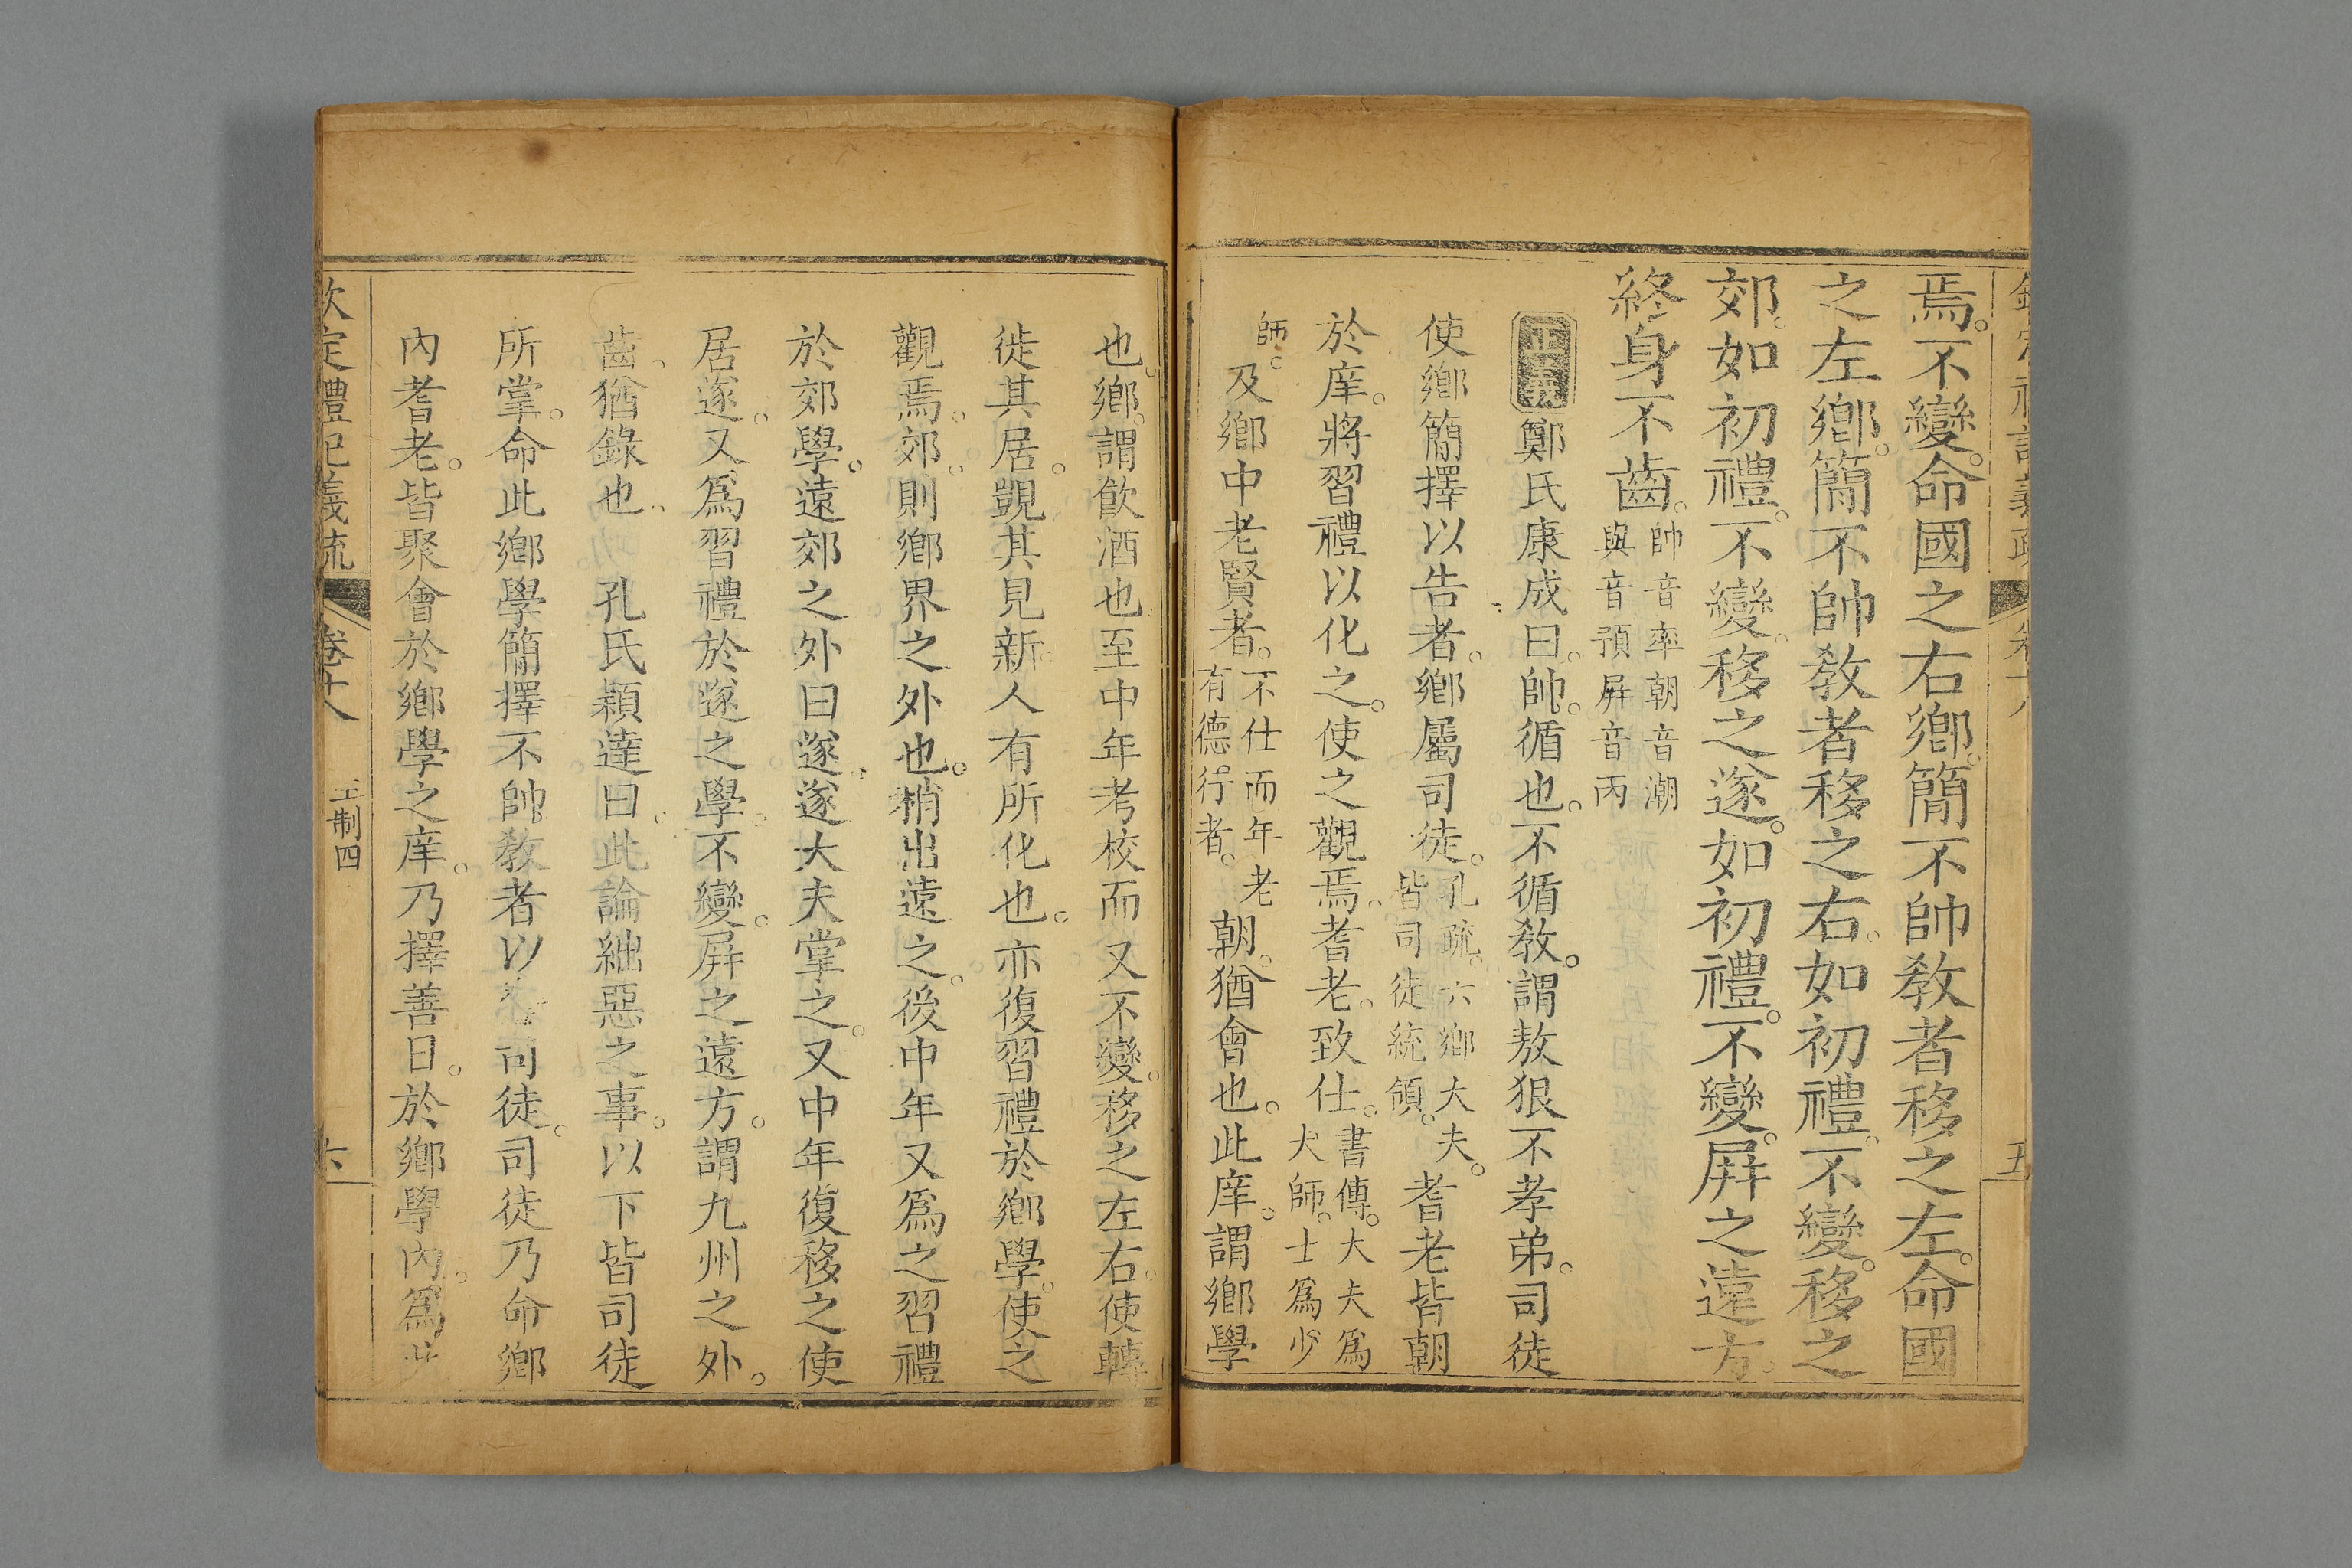 焉。不變。命國之右鄉。簡不帥教者移之左。命國
之左鄉。簡不帥教者移之右。如初禮。不變。移之
郊。如初禮。不變。移之遂。如初禮。不變。屏之遠方。
終身不齒。帥音率朝音潮
與音預屏音丙
正義鄭氏康成曰。帥。循也。不循教。謂敖狠不孝弟。司徒
使鄉簡擇以告者。鄉屬司徒。孔疏。六鄉大夫。皆司徒統領。耆老皆朝
於庠。將習禮以化之。使之觀焉。耆老。致仕。書傳。大夫爲大師。士爲少
師。及鄉中老賢者。不仕而年老有德行者。朝。猶會也。此庠。謂鄉學
也。鄉。謂飲酒也。至中年考校而又不變。移之左右。使轉
徙其居。覬其見新人有所化也。亦復習禮於鄉學。使之
觀焉。郊。則鄉界之外也。稍出遠之。後中年又爲之習禮
於郊學。遠郊之外曰遂。遂大夫掌之。又中年復移之使
居遂。又爲習禮於遂之學。不變。屏之遠方。謂九州之外。
齒。猶錄也。孔氏穎達曰。此論絀惡之事。以下皆司徒
所掌。命此鄉學簡擇不帥教者以司徒。司徒乃命鄉
內耆老。皆聚會於鄉學之庠。乃擇善日。於鄉學內。爲此
欽定禮記義疏
卷十八
王制四
六
五